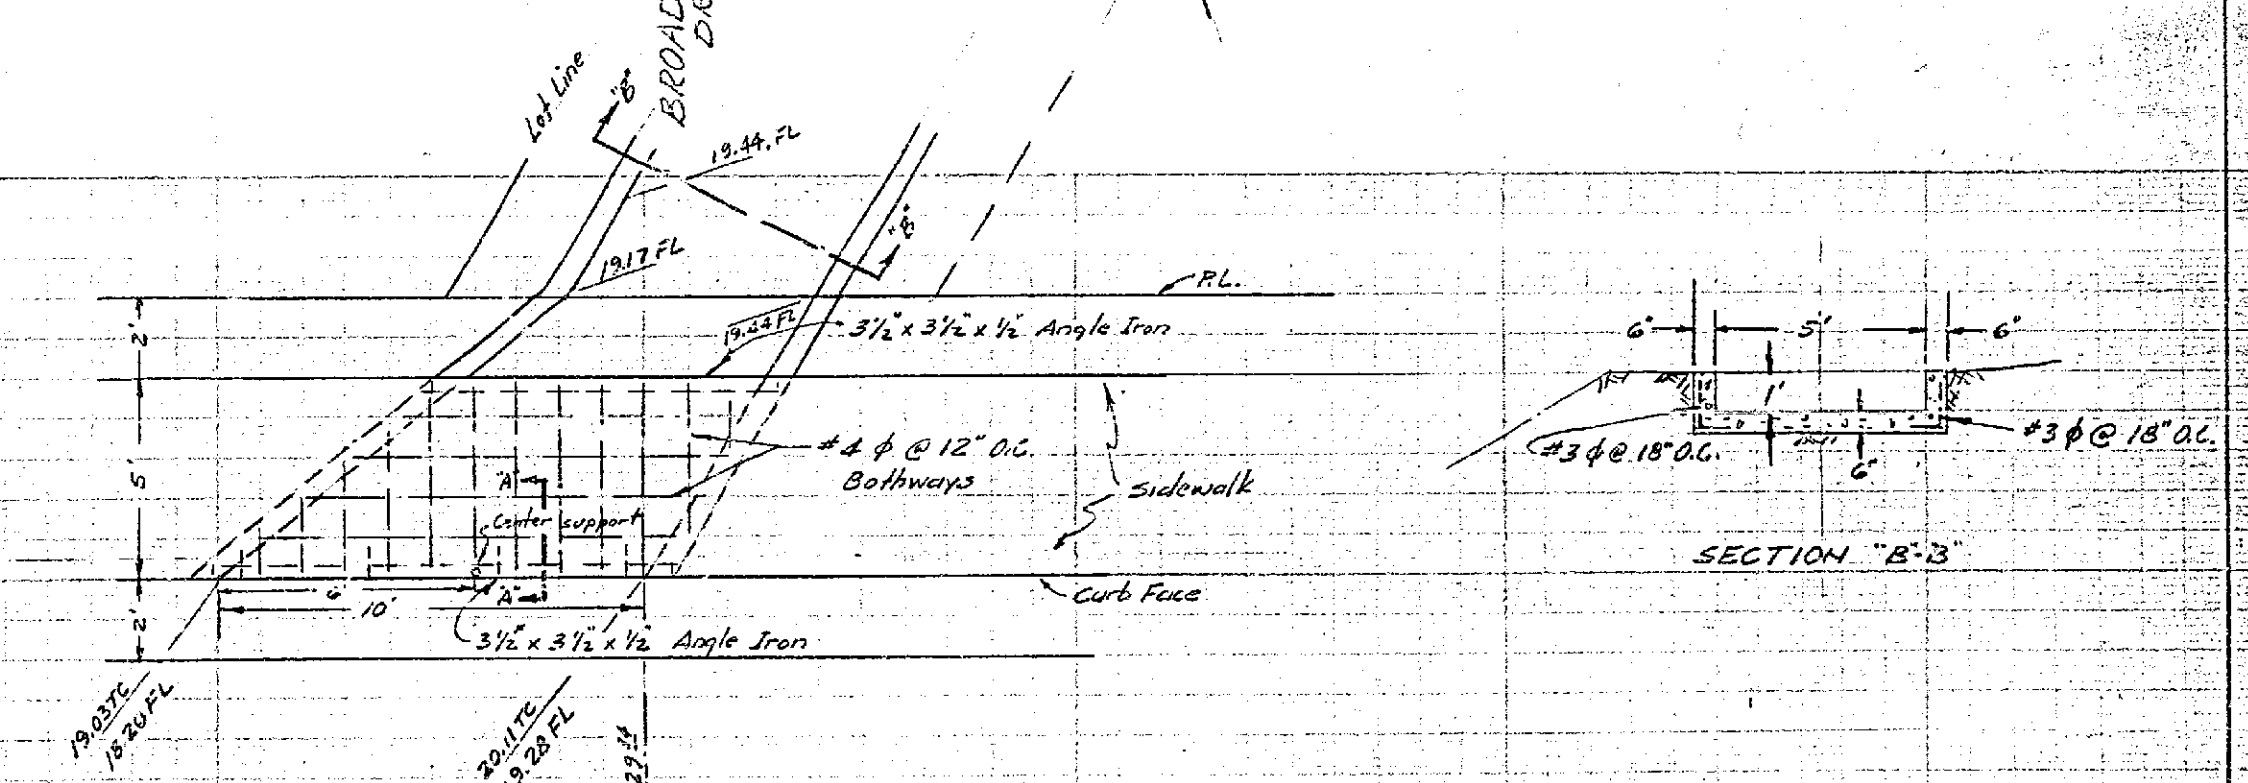 BROAD
DR
Lot Line
"B"
19.44 FL
"B"
19.17 FL
P.L.
19.44 FL
3½" x 3½" x ½" Angle Iron
2'
5'
2'
#4 ϕ @ 12" O.C.
Bothways
"A"
Center support
Sidewalk
6'
10'
"A"
Curb Face
3½" x 3½" x ½" Angle Iron
19.03 TC
18.20 FL
20.11 TC
19.28 FL
6"
5'
6"
1'
#3 ϕ @ 18" O.C.
#3 ϕ @ 18" O.C.
6"
SECTION "B-B"